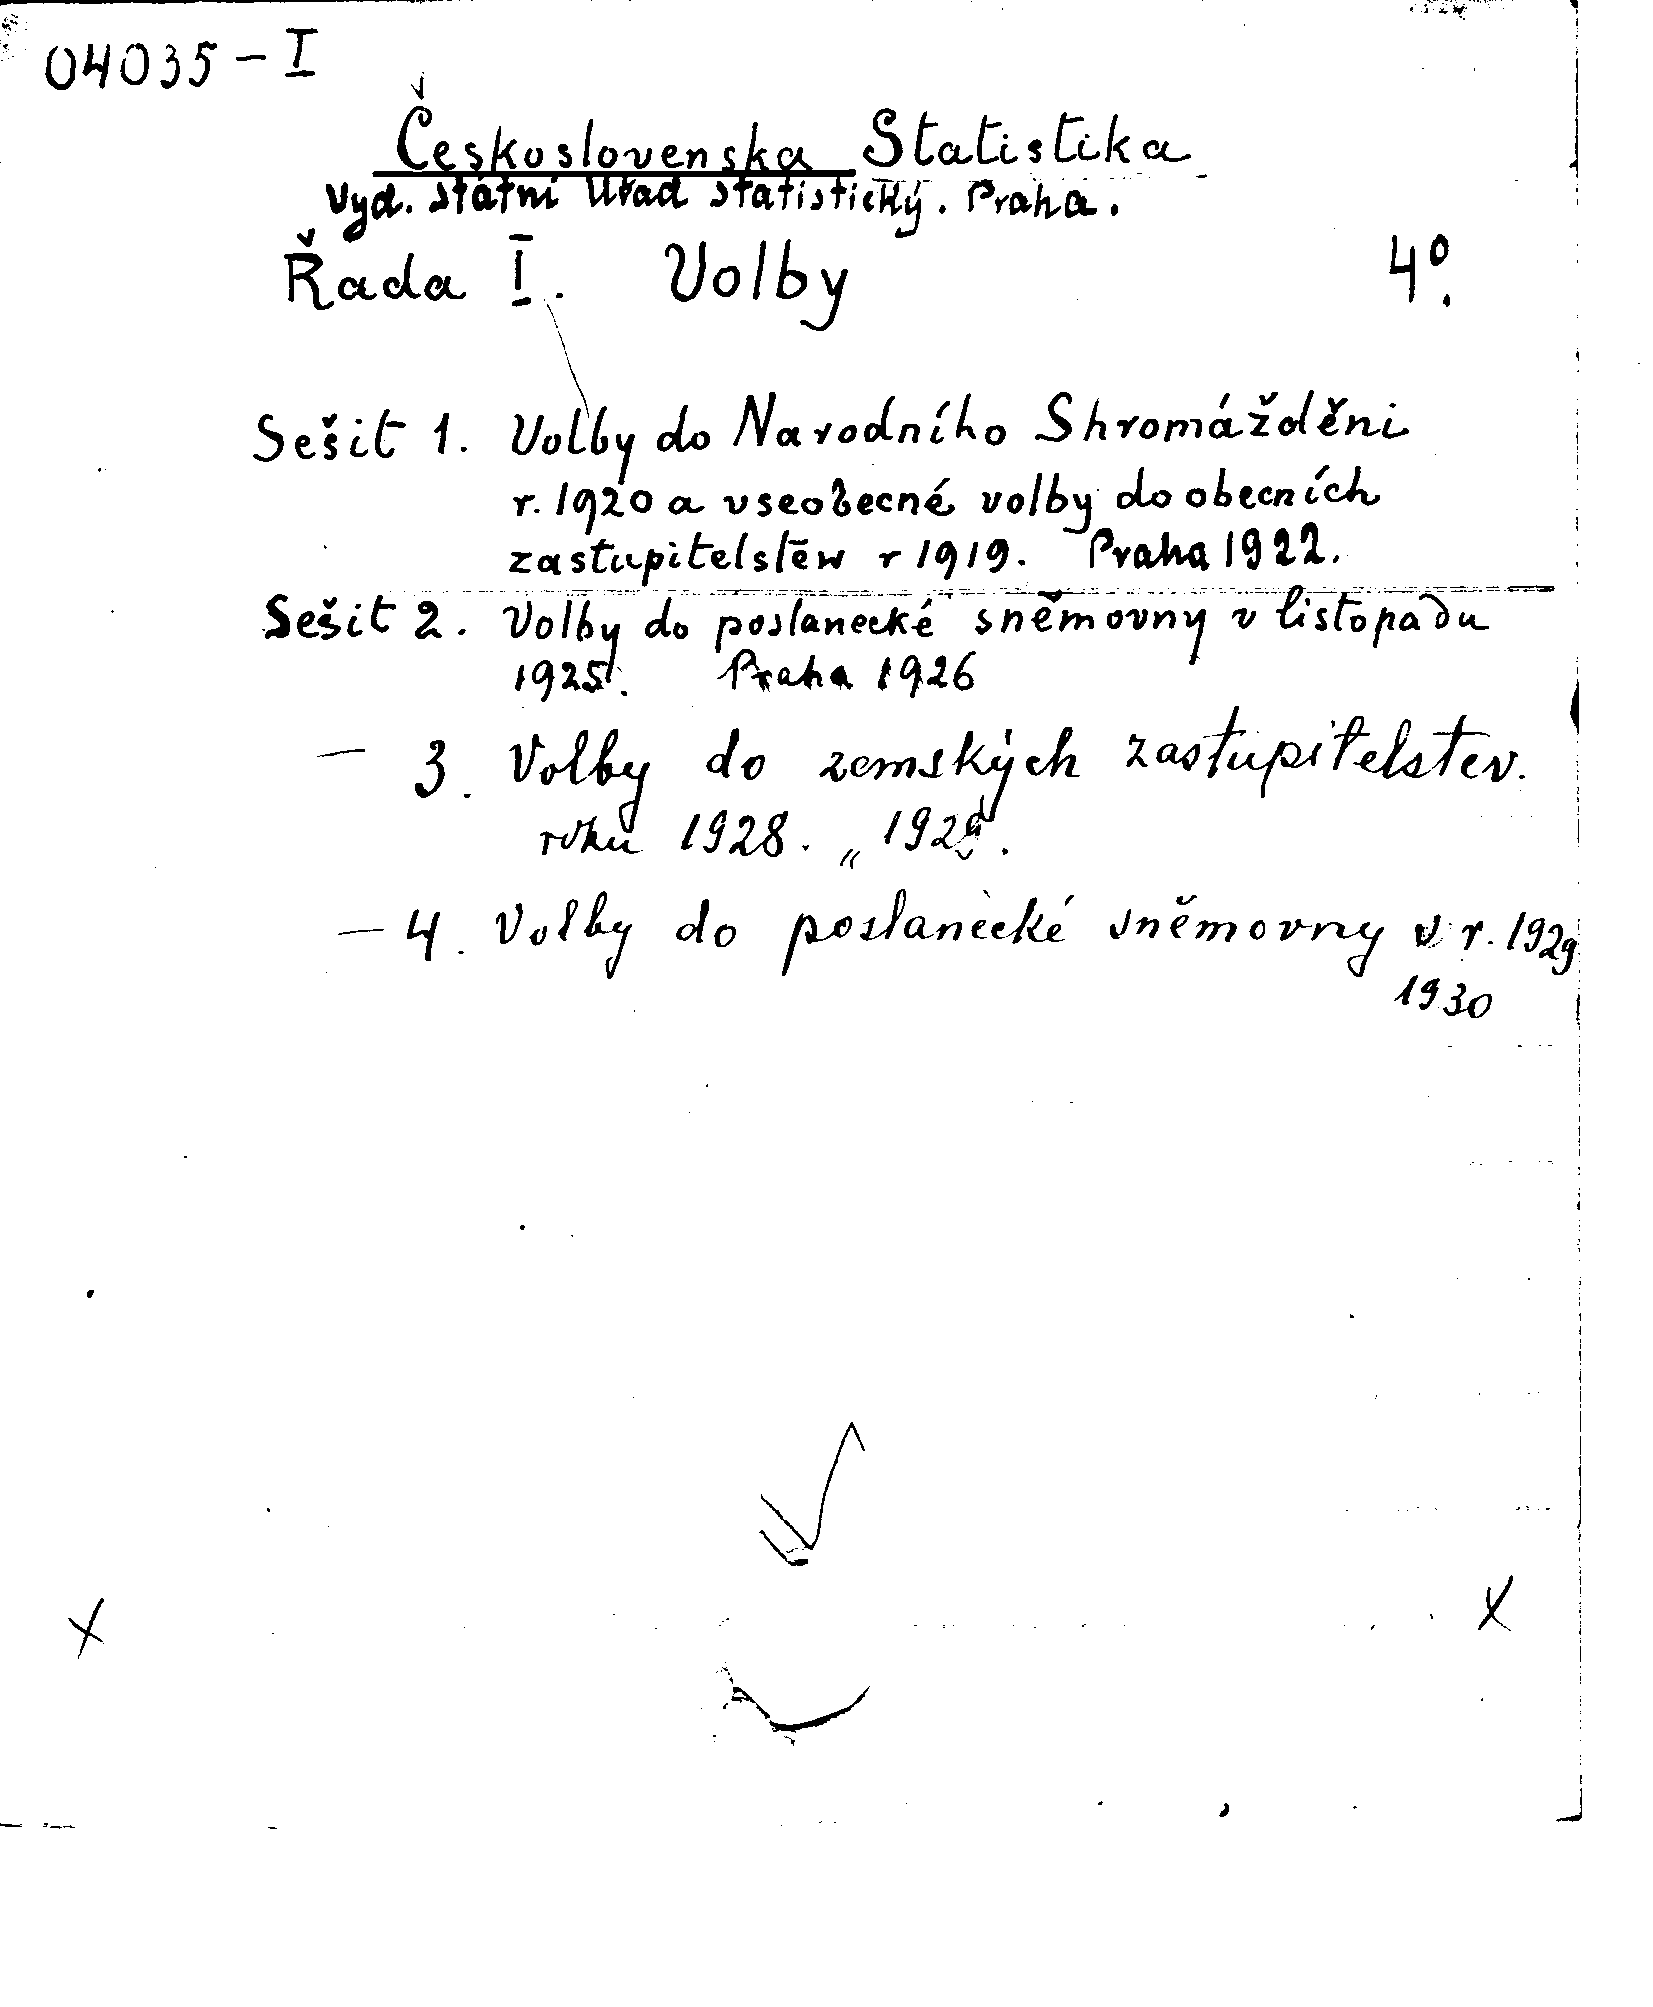 04035 - I
Československa Statistika
Vyd. státní Uřad statistický. Praha.
Řada I. Volby 4°.
Sešit 1. Volby do Narodního Shromážděni
r. 1920 a vseobecné volby do obecních
zastupitelstěw r 1919. Praha 1922.
Sešit 2. Volby do poslanecké sněmovny v listopadu
1925. Praha 1926
— 3. Volby do zemských zastupitelstev.
roku 1928. „ 1929.
— 4. Volby do poslanecké sněmovny v r. 1929
1930